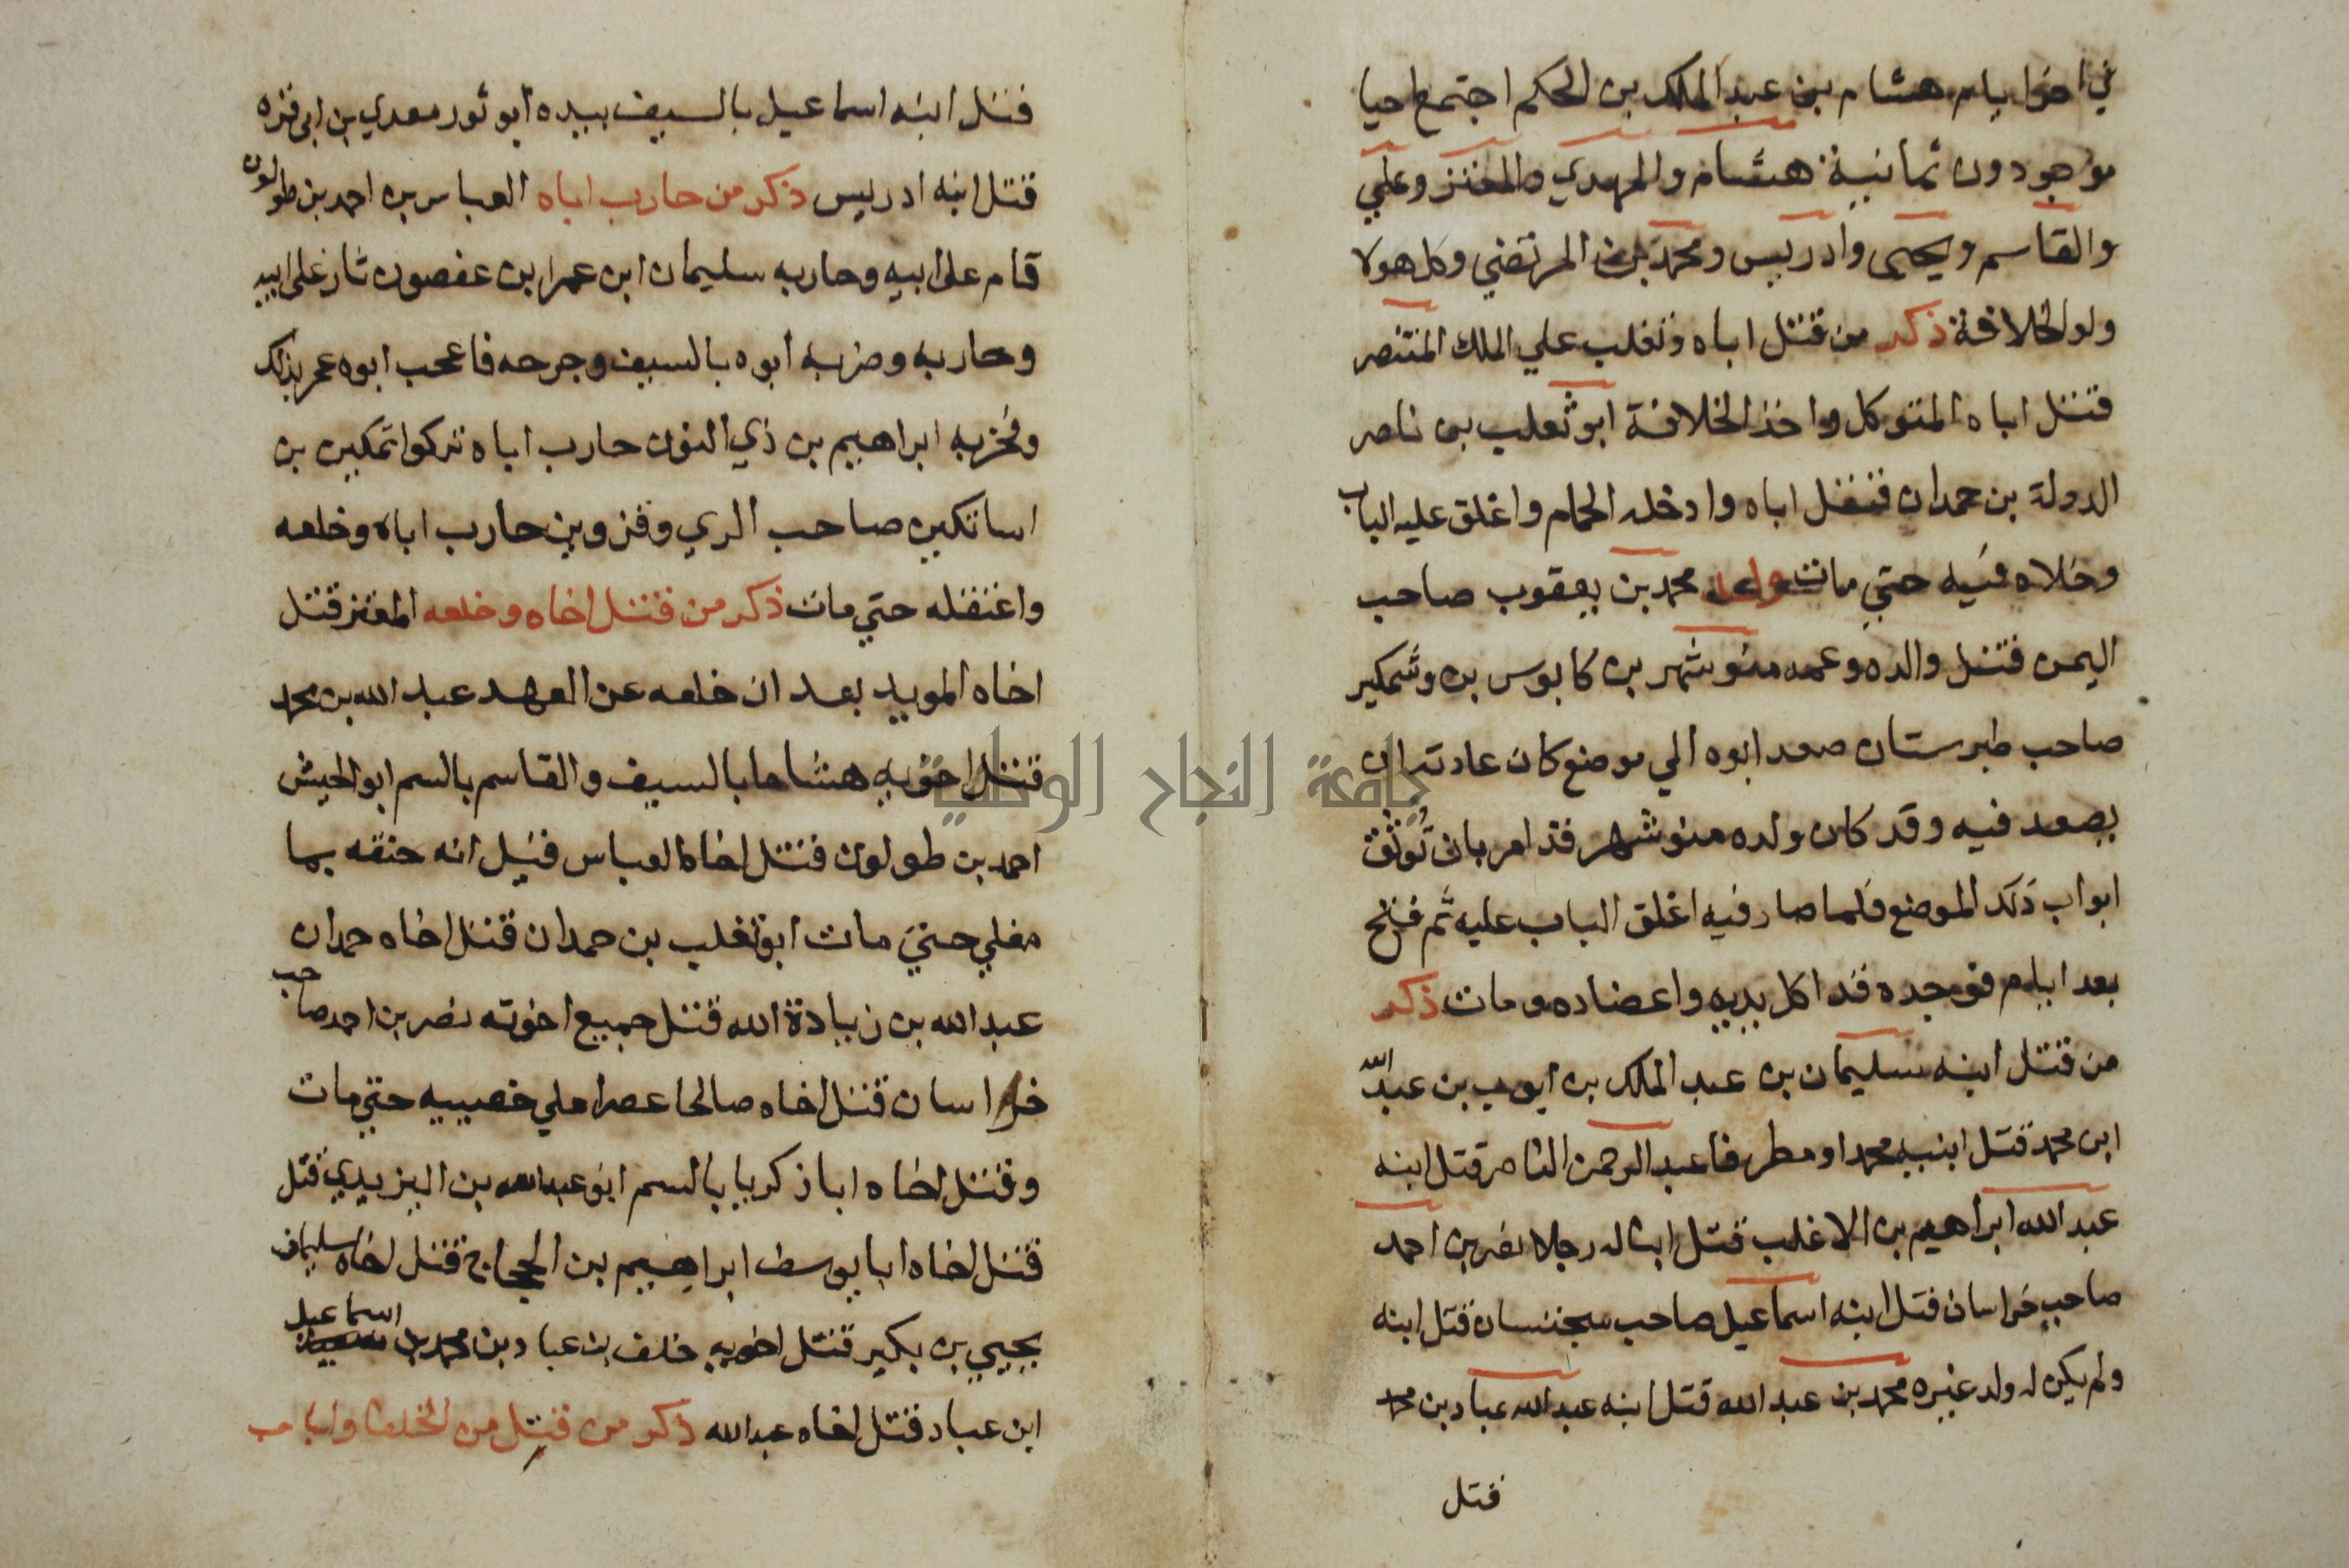 في اخر ايام هشام بن عبد الملك بن الحكم اجتمع احيا
موجودون ثمانية هشام والمهدي والمعتز وعلي
والقاسم ويحيى وادريس ومحمد المرتضي وكل هولا
ولو الخلافة ذكر من قتل اباه وتغلب علي الملك المنتصر
قتل اباه المتوكل واخذ الخلافة ابو ثعلب بن ناصر
الدولة بن حمدان قتل اباه وادخله الحمام واغلق عليه الباب
وخلاه فيه حتي مات محمد بن يعقوب صاحب
اليمن قتل والده وعمه منوشهر بن كابوس بن وشمكير
صاحب طبرستان صعد ابوه الي موضع كان عادته ان
يصعد فيه وقد كان ولده منوشهر قد امر بان توثق
ابواب ذلك الموضع فلما صار فيه اغلق الباب عليه ثم فتح
بعد ايام فوجده قد اكل يديه واعضاده ومات ذكر
من قتل ابنه سليمان بن عبد الملك بن ايوب بن عبد الله
ابن محمد قتل ابنيه محمدا ومطرفا عبد الرحمن الناصر قتل ابنه
عبد الله ابراهيم بن الاغلب قتل ابنا له رجلا نصر بن احمد
صاحب خراسان قتل ابنه اسماعيل صاحب سجستان قتل ابنه
ولم يكن له ولد غيره محمد بن عبد الله قتل ابنه عبد الله عباد بن محمد
قتل
قتل ابنه اسماعيل بالسيف بيده ابو ثور معدي بن ابي قره
قتل ابنه ادريس ذكر من حارب اباه العباس بن احمد بن طولون
قام علي ابيه وحاربه سليمان ابن عمر ابن عفصون ثار علي ابيه
وحاربه وضربه ابوه بالسيف وجرحه فاعجب ابوه عمر بذلك
وفخر به ابراهيم بن ذي النون حارب اباه تركوا تمكين بن
اساتكين صاحب الري وقزوين حارب اباه وخلعه
واعتقله حتي مات ذكر من قتل اخاه وخلعه المعتز قتل
اخاه المويد بعد ان خلعه عن العهد عبد الله بن محمد
قتل اخويه هشاما بالسيف والقاسم بالسم ابو الجيش
احمد بن طولون قتل اخاه العباس قيل انه حنقه بما
مغلي حتي مات ابو تغلب بن حمدان قتل اخاه حمدان
عبد الله بن زيادة الله قتل جميع اخوته نصر بن احمد صاحب
خراسان قتل اخاه صالحا عصرا علي خصييه حتي مات
وقتل اخاه ابا زكريا بالسم ابو عبد الله بن اليزيدي قتل
قتل اخاه ابا يوسف ابراهيم بن الحجاج قتل اخاه سليمان
يحيي بن بكير قتل اخويه خلف بن عباد بن محمد بن اسماعيل
ابن عباد قتل اخاه عبد الله ذكر من قتل من الخلفا واباه
جامعة النجاح الوطنية